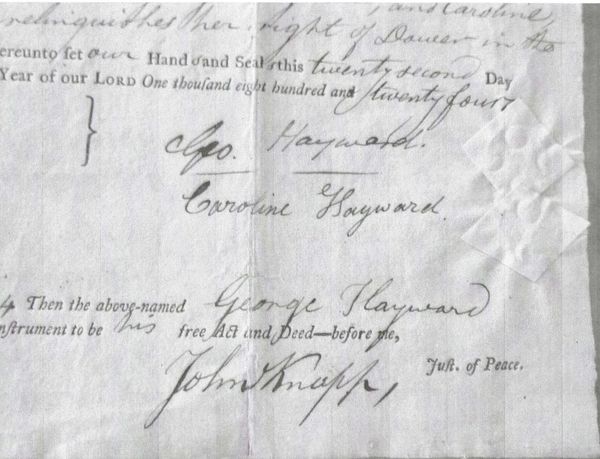 and Caroline,
relinquishes her right of Dower in the
ereunto ſet our Hands and Seals this twenty second Day
Year of our LORD One thouſand eight hundred and twenty four
Geo. Hayward.
Caroline Hayward
4 Then the above-named George Hayward
nſtrument to be his free Act and Deed—before me,
John Knapp, Juſt. of Peace.